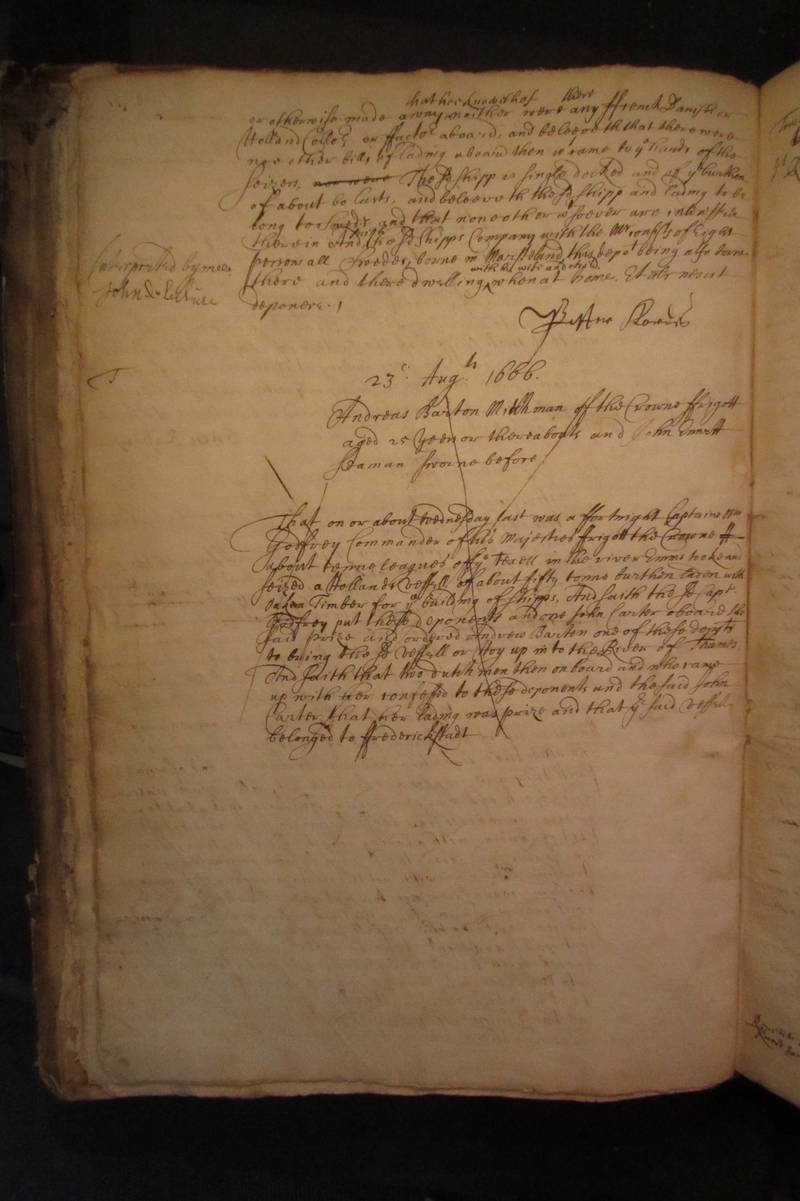 that hee knoweth of there
or otherwise made away neither were any ffrench Danish or
Holland Colo:rs or ffactor aboard, and beleeveth that there were
noe other bills of lading aboard then came to ye hands of the
seizers, nor were The sd shipp is single decked and of ye burthen
of about 60 lasts, and beleeveth the sd shipp and lading to be
long to Swedes and that none other whosoever are interested
therein And the sd shipps Company with the Mr consists of Eight
persons all Swedes, borne in Marsteland this depot being also borne
with his wife and child
there and there dwelling when at home. Et aliter nescit
deponere.
Interpreted by mee
John de
23o. Augti. 1666.
Andreas Barton Midshman of the Crowne ffrigott
aged 25 yeeres or thereabouts and John Emett
seaman sworne before
That on or about wednesday last was a ffortnight Captaine Wm
Godfrey Commander of his Majesties ffrigott the Crowne ff
about tenne leagues off ye Texell in the river Emms tooke and
seized a Hollands vessell of about fifty tonne burthen laden with
Oaken Timber for ye building of shipps, And saith the sd Capt
Godfrey put these deponents and one John Carter aboard the
said prize and ordered Andrew Barton one of these depots
to bring the sd vessell or Hoy up into the River of Thames
And saith that two dutch men then on board and who came
up with her confessed to these deponents and the said John
Carter that her lading was prize and that ye said vessell
belonged to ffrederickstadt